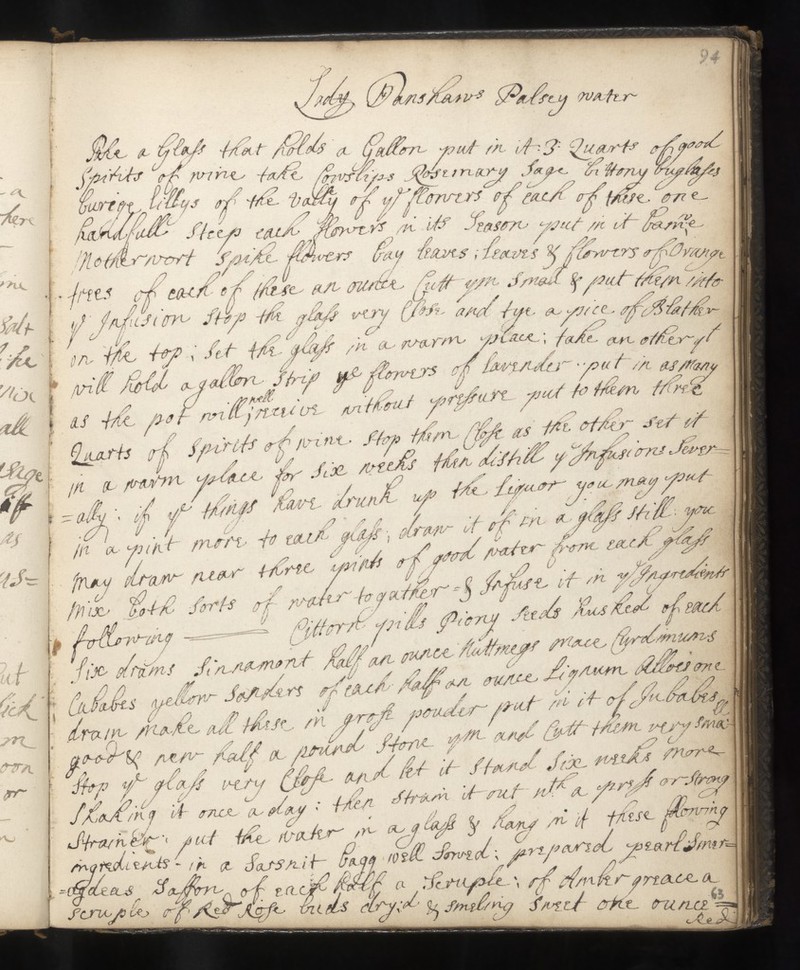 94
Lady Fanshaws Palsey water
Take a Glass that holds a Gallon put in it :3: Quarts of good
Spirits of wine take Cowslips Rosemary Sage bittony buglass
burege lillys of the vally of ye flowers of each of these one
handfull Steep each flowers in its Season put in it
Motherwort Spike flowers bay leaves ; leaves & flowers of Orange
trees of each of these an ounce Cutt ym Small & put them into
ye Infusion Stop the glass very Close and tye a pice of Blather
on the top ; Set the glass in a warm place ; take an other yt
will hold a gallon Strip ye flowers of lavender put in as many
as the pot will well ; receive without pressure put to them three
Quarts of Spirits of wine Stop them Close as the other set it
in a warm place for Six weeks then distill ye Infusions Sever=
=ally : if ye things have drunk up the Liquor you may put
in a pint more to each glass ; draw it of in a glass still you
may draw near three pints of good water from each glass
mix both Sorts of water togather = & Infuse it in ye Ingredients
following Cittorn pills Piony seeds husked of each
Six drams Sinnamont half an ounce Nuttmegs mace Curdmums
Cubabes yellow Sanders of each half an ounce Lignum Alloes one
dram make all these in grose pouder put in it of Jubabes
good & new half a pound Stone ym and Cutt them very Sma:
Stop ye glass very Close and let it stand Six weeks more
Shaking it once a day : then Strain it out wth a press or strong
Strainer ; put the water in a glass & hang in it these flowing
ingredients - in a Sarsnit bagg well sowed ; prepared pearl Smer=
=agdeas Saffon of each half a Scruple ; of Amber greace a
Scruple of Red Rose buds dry:d & smeling Sweet one ounce =
63
Red